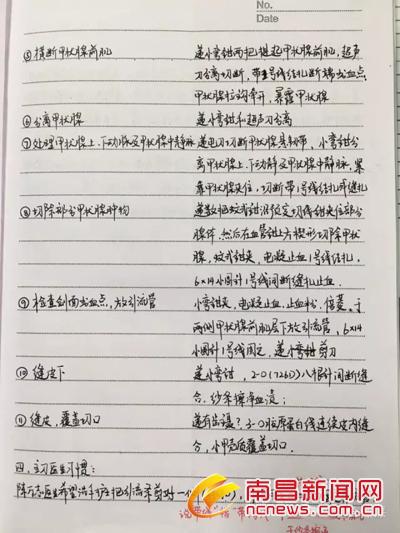 No.
Date
⑤横断甲状腺前肌 递小弯钳两把提起甲状腺前肌,超声
刀分离切断,带1号线结扎断端出血点,
甲状腺拉钩牵开,暴露甲状腺
⑥分离甲状腺 递小弯钳和超声刀分离
⑦处理甲状腺上、下动脉及甲状腺中静脉 递电刀切断甲状腺悬韧带,小弯钳分
离甲状腺上、下动静及甲状腺中静脉,
靠甲状腺夹住,切断带1号线结扎或缝扎
⑧切除部分甲状腺肿物 递数把蚊式钳沿预定切线钳夹住部分
腺体,然后在血管钳上方楔形切除甲状
腺,蚊式钳夹,电凝止血1号线结扎,
6×14小圆针1号线间断缝扎止血.
⑨检查创面出血点,放引流管 小弯钳夹,电凝止血,止血粉.倍菱.于
两侧甲状腺前肌层下放引流管,6×14
小圆针1号线固定,递小弯钳剪刀
⑩缝皮下 递小弯钳,2-0(726D)八根针间断缝
合.纱条擦净血渍;
⑪缝皮,覆盖切口 3-0胶原蛋白线连续皮内缝
合,小甲壳质覆盖切口.
四、主刀医生习惯:
医生希望洗手护士把引流条剪对一
南昌新闻网
ncnews.com.cn